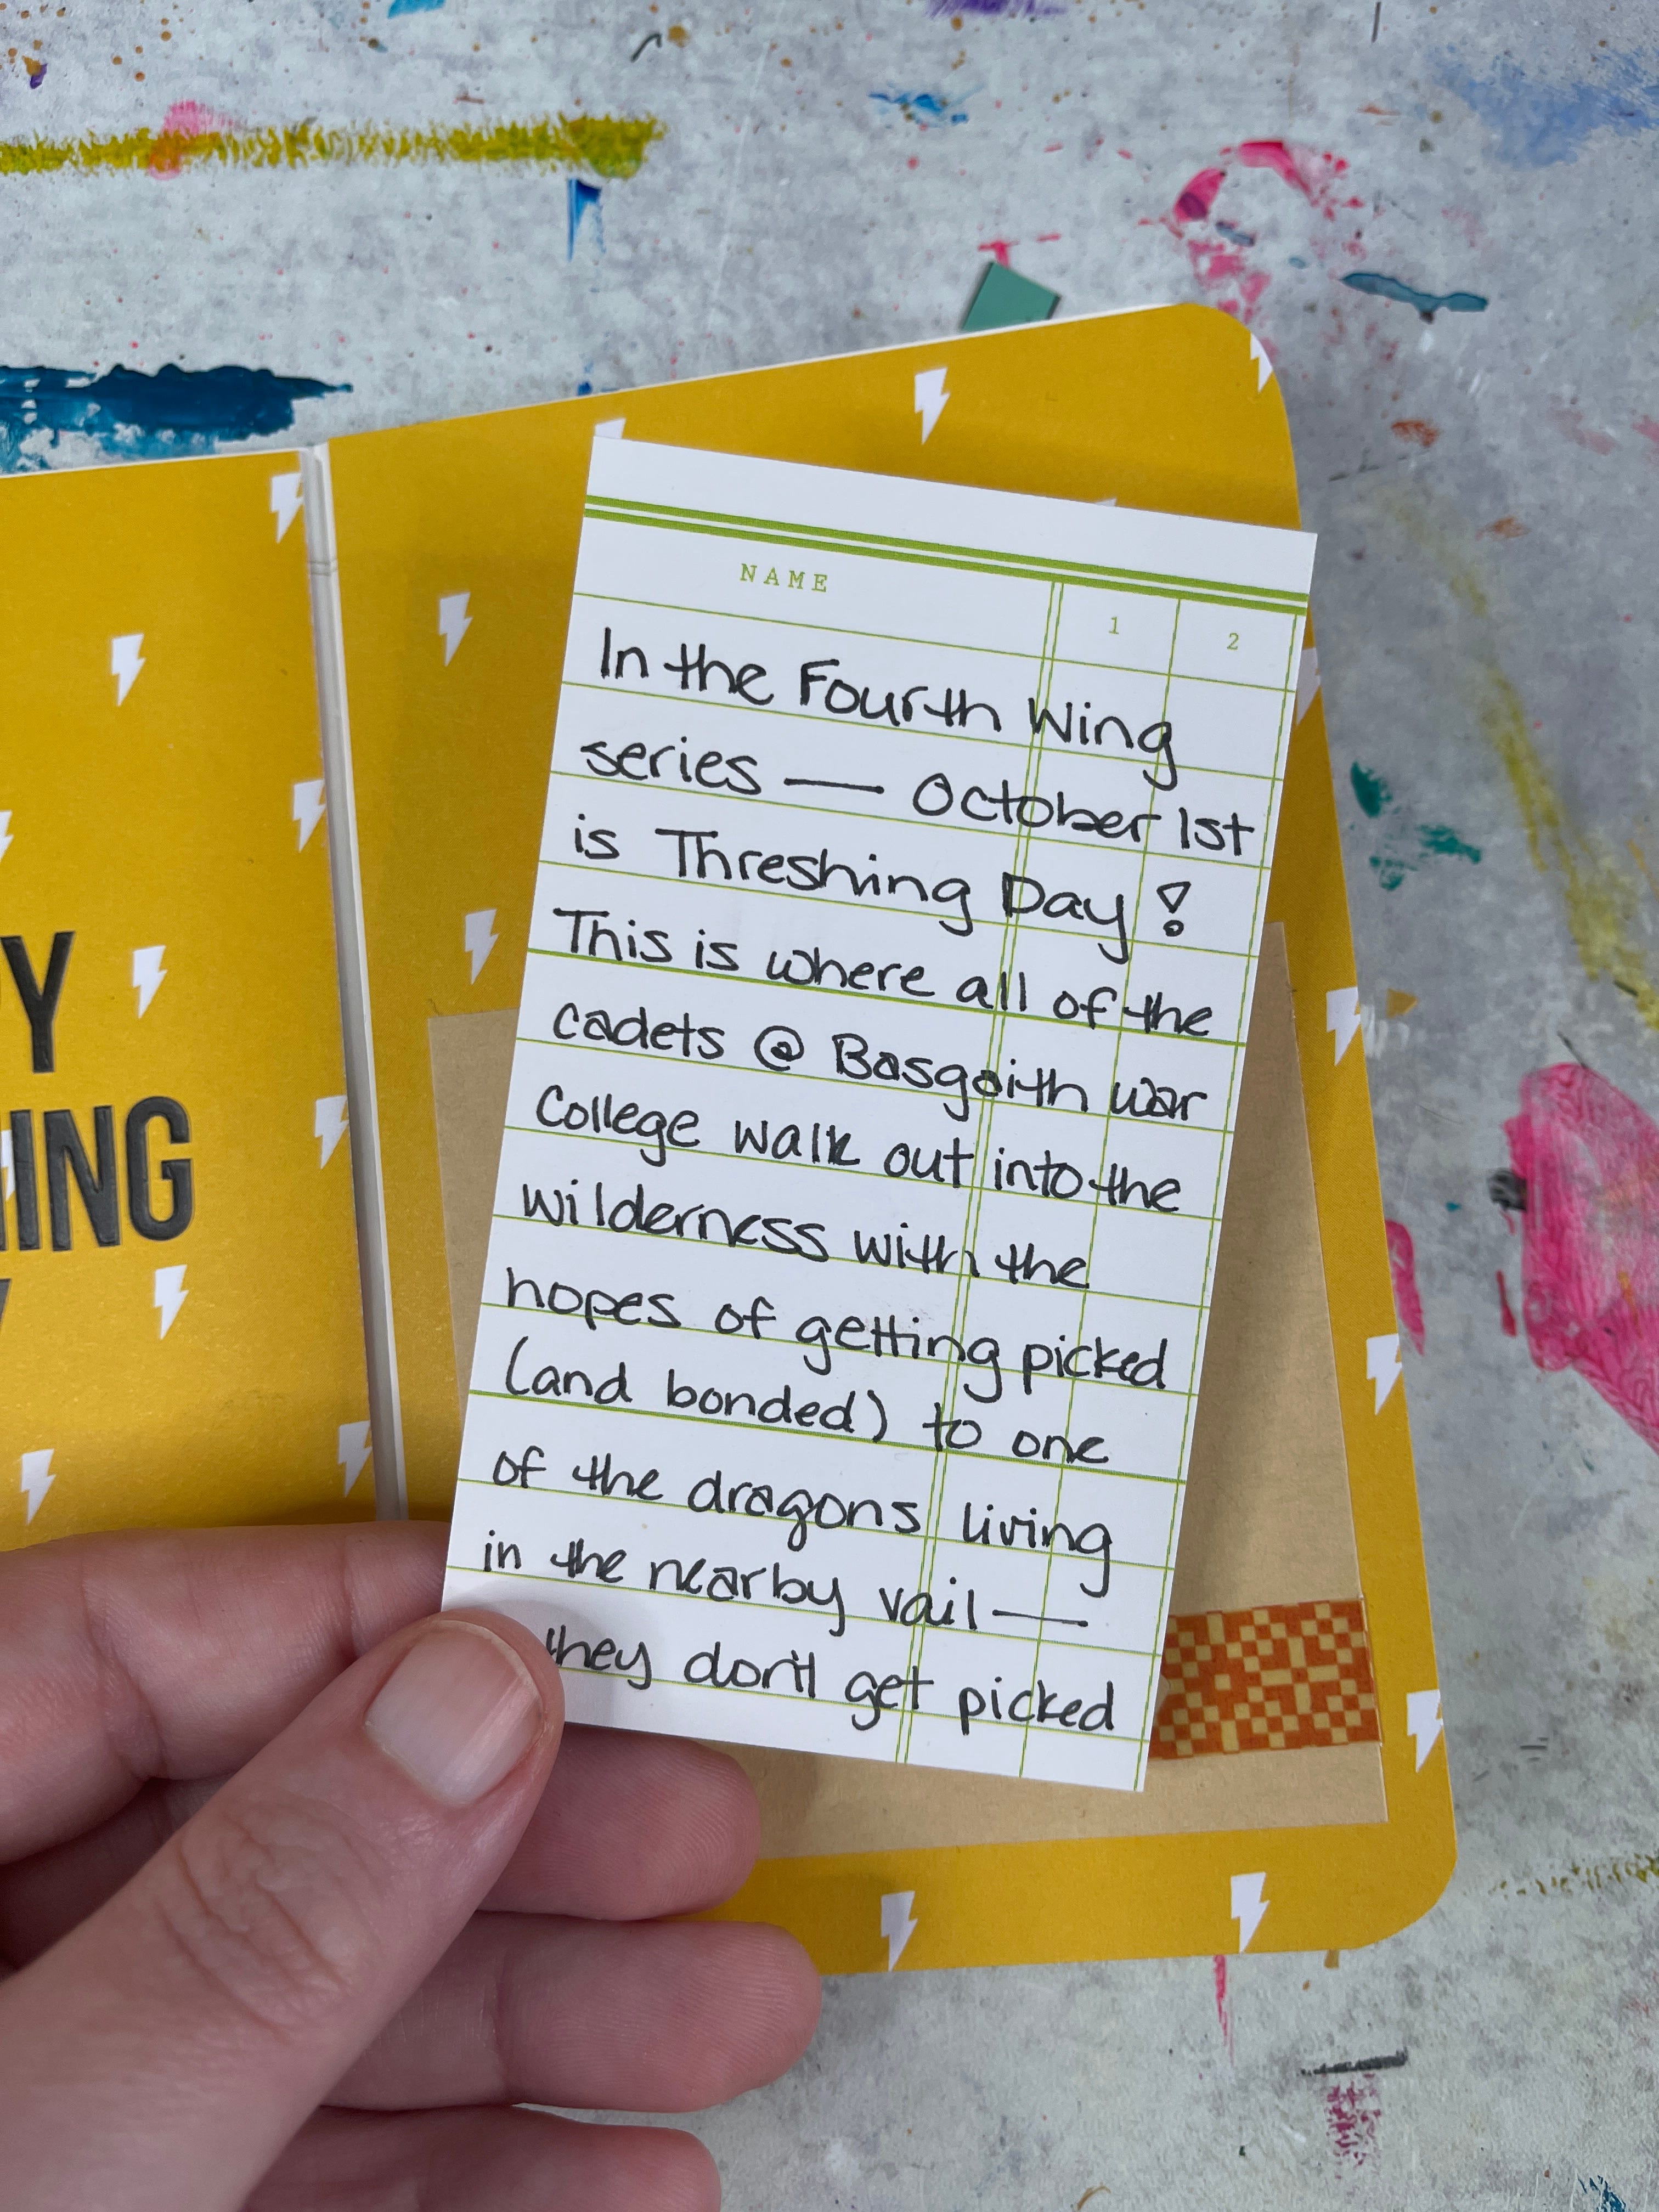 PY
HING
Y
NAME 1 2
In the Fourth Wing
series — October 1st
is Threshing Day!
This is where all of the
cadets @ Basgaith war
College walk out into the
wilderness with the
hopes of getting picked
(and bonded) to one
of the dragons living
in the nearby vail —
they don't get picked